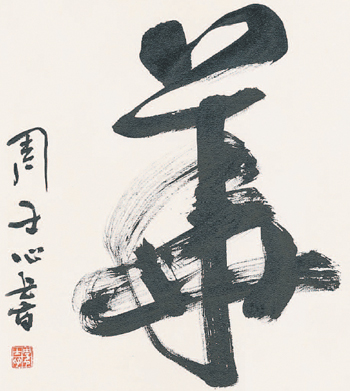 華
周士心書